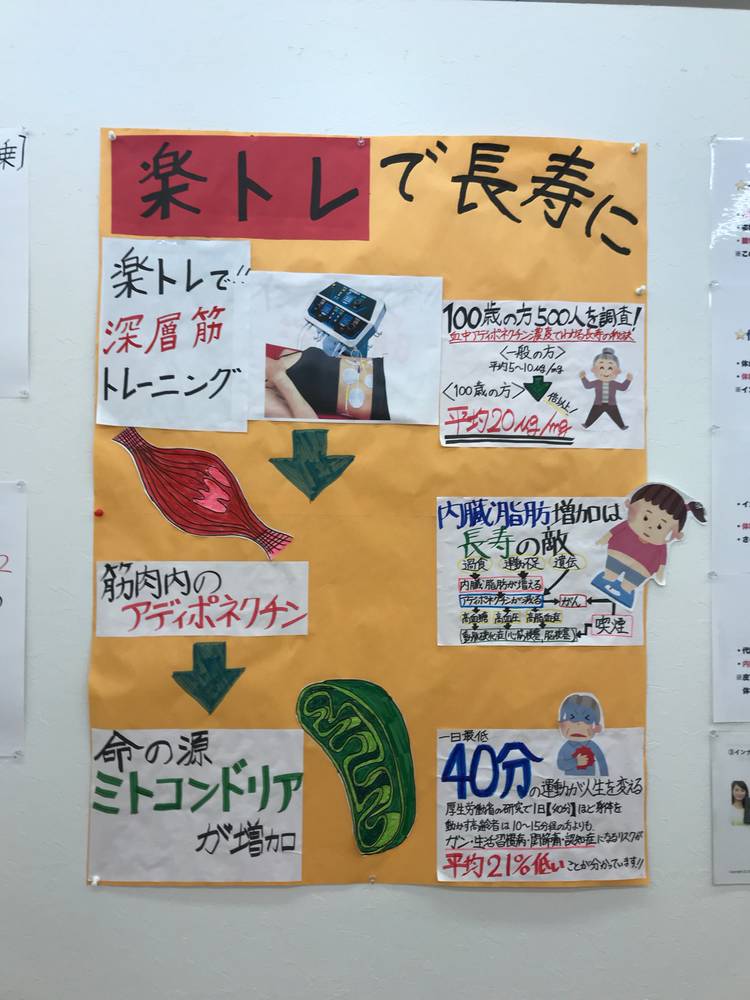 楽トレで長寿に
楽トレで!!
深層筋
トレーニング
筋肉内の
アディポネクチン
命の源
ミトコンドリア
が増加
100歳の方500人を調査!
血中アディポネクチン濃度でわかる長寿の秘訣
〈一般の方〉
平均5~10μg/mg
〈100歳の方〉
倍以上!
平均20μg/mg
内臓脂肪増加は
長寿の敵
過食 運動不足 遺伝
内臓脂肪が増える
アディポネクチンが減る
がん
高血糖 高血圧 高脂血症
喫煙
動脈硬化症(心筋梗塞、脳梗塞)
一日最低
40分の運動が人生を変える
厚生労働省の研究で1日【40分】ほど身体を
動かす高齢者は10~15分程の方よりも、
ガン・生活習慣病・関節痛・認知症になるリスクが
平均21%低いことが分かっています!!
乗]